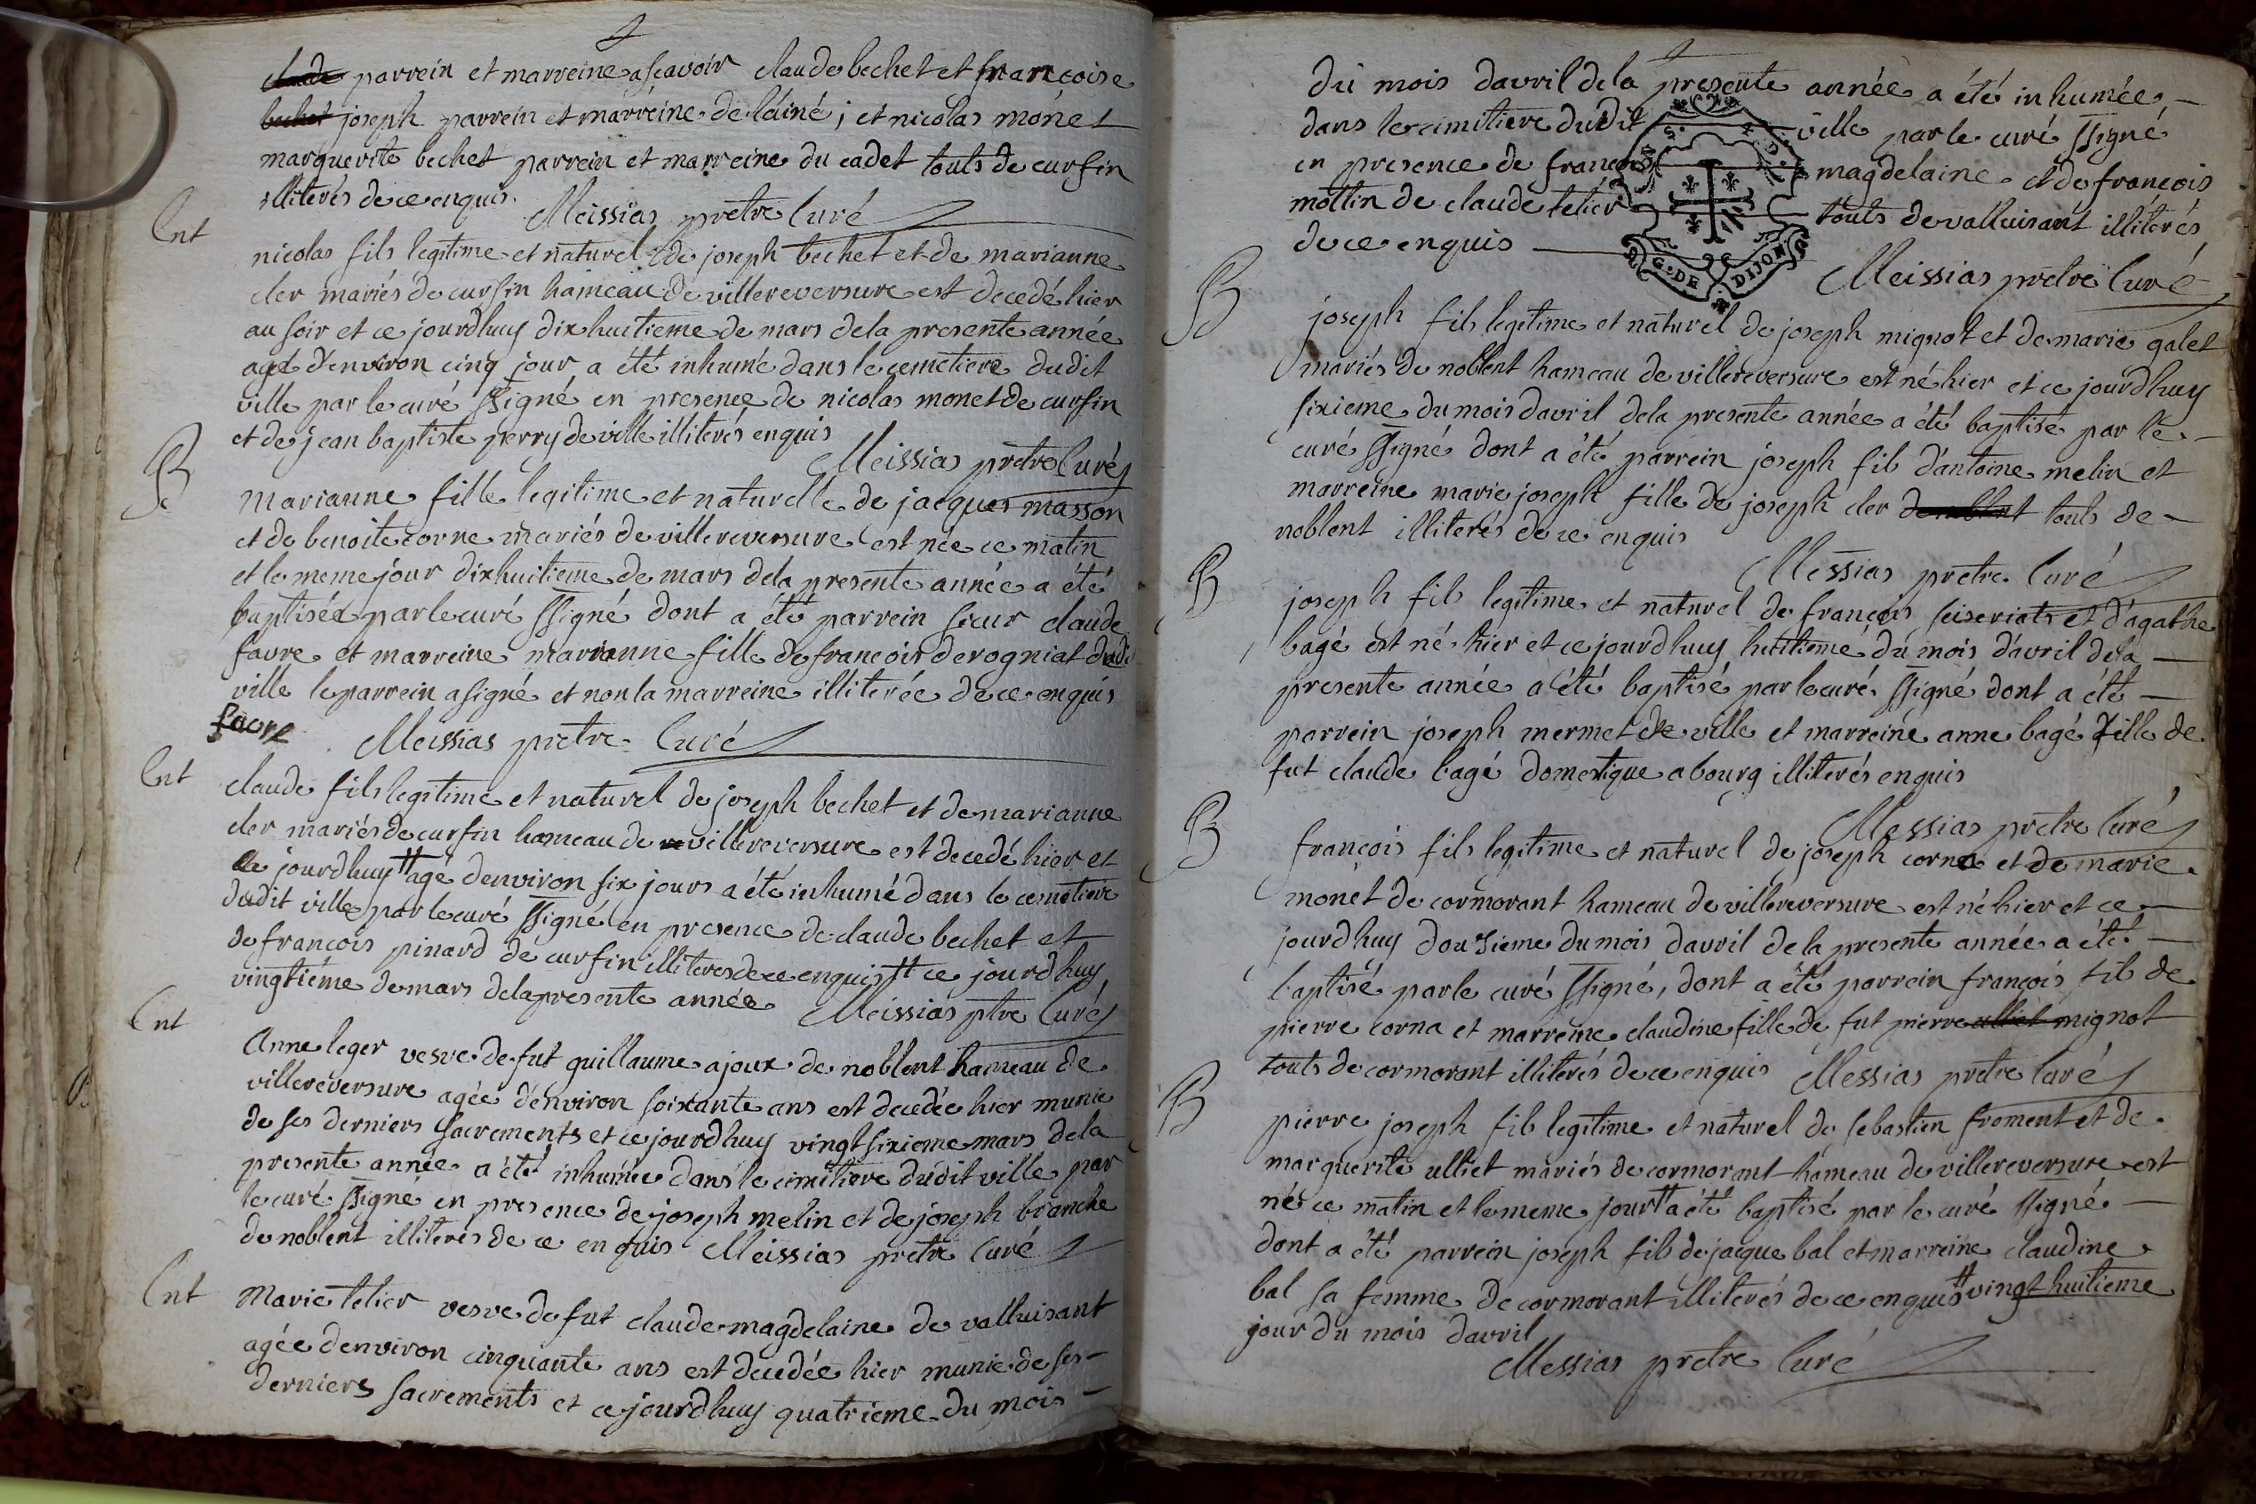 parrein et marreine asçavoir claude bechet et francoise
joseph parrein et marreine de láiné ; et nicolas monet
marguerite bechet parrein et marreine du cadet touts de curfin
illiterés de ce enquis. Meissias pretre Curé
Ent
nicolas fils legitime et naturel de joseph bechet et de marianne
cler mariés de curfin hameau de villereversure est decedé hier
au soir et ce jourdhuy dixhuitieme de mars dela presente année
agé d'environ cinq jour a été inhumé dans le cemetiere dudit
ville par le curé ssigné en presence de nicolas monet de curfin
et de jean baptiste perry de ville illiterés enquis
Meissias pretre Curé
B
marianne fille legitime et naturelle de jacques masson
et de benoite corne mariés de villereversure est née ce matin
et le meme jour dixhuitieme de mars dela presente année a été
baptisée par le curé ssigné dont a été parrein sieur claude
favre et marreine marianne fille de francois derogniat dudit
ville le parrein a signé et non la marreine illiterée de ce enquis
favre Meissias pretre Curé
Ent
claude fils legitime et naturel de joseph bechet et de marianne
cler mariés de curfin hameau de villereversure est decedé hier et
ce jourdhuy # agé d'environ six jours a été inhumé dans le cemetiere
dudit ville par le curé ssigné en presence de claude bechet et
de francois pinard de curfin illiteres de ce enquis # ce jourdhuy
vingtiéme de mars dela presente année Meissias ptre Curé
Ent
Anne leger vesve de fut guillaume ajoux de noblent hameau de
villereversure agée d'environ soixante ans est decedée hier munie
de ses derniers sacrements et ce jourdhuy vingt sixieme mars dela
presente année a été inhumée dans le cimitiere dudit ville par
le curé ssigné en presence de joseph melin et de joseph branche
de noblent illiterés de ce enquis Meissias pretre Curé
Ent
Marie telier vesve de fut claude magdelaine de valluisant
agée d'environ cinquante ans est decedée hier munie de ses
derniers sacrements et ce jourdhuy quatrieme du mois
du mois davril dela presente année a été inhumée
dans le cimitiere dudit ville par le curé ssigné
en presence de francois magdelaine et de francois
mottin de claude telier touts de valluisant illiterés
de ce enquis
G. DE DIJON
Meissias pretre Curé
B
joseph fils legitime et naturel de joseph mignot et de marie galet
mariés de noblent hameau de villereversure est né hier et ce jourdhuy
sixieme du mois davril dela presente année a été baptisé par le
curé ssigné dont a été parrein joseph fils d'antoine melin et
marreine marie joseph fille de joseph cler touts de
noblent illiterés de ce enquis
Messias pretre Curé
B
joseph fils legitime et naturel de francois seiseriats et d'agathe
bagé est né hier et ce jourdhuy huitieme du mois d'avril dela
presente année a été baptisé par le curé ssigné dont a été
parrein joseph mermet de ville et marreine anne bagé fille de
fut claude bagé domestique a bourg illiterés enquis
Messias pretre Curé
B
françois fils legitime et naturel de joseph corna et de marie
monet de cormorant hameau de villereversure est né hier et ce
jourdhuy douzieme du mois davril de la presente année a été
baptisé par le curé ssigné, dont a été parrein françois fils de
pierre corna et marreine claudine fille de fut pierre mignot
touts de cormorant illiterés de ce enquis Messias pretre Curé
B
pierre joseph fils legitime et naturel de sebastien froment et de
marguerite ulliet mariés de cormorant hameau de villereversure est
né ce matin et le meme jour # a été baptisé par le curé ssigné
dont a été parrein joseph fils de jacque bal et marreine claudine
bal sa femme de cormorant illiterés de ce enquis # vingt huitieme
jour du mois davril
Messias pretre Curé